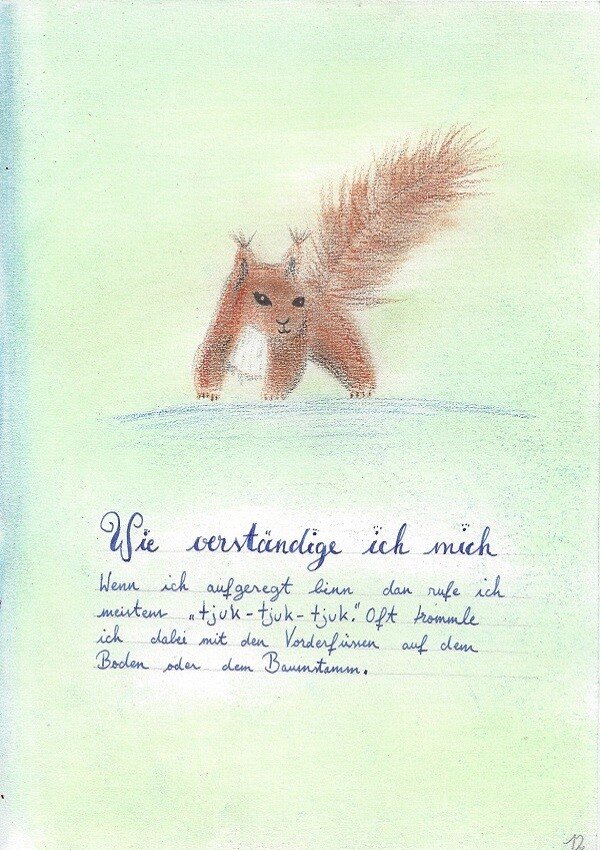 Wie verständige ich mich
Wenn ich aufgeregt binn dan rufe ich
meistens „tjuk-tjuk-tjuk." Oft trommle
ich dabei mit den Vorderfüssen auf dem
Boden oder dem Baumstamm.
12